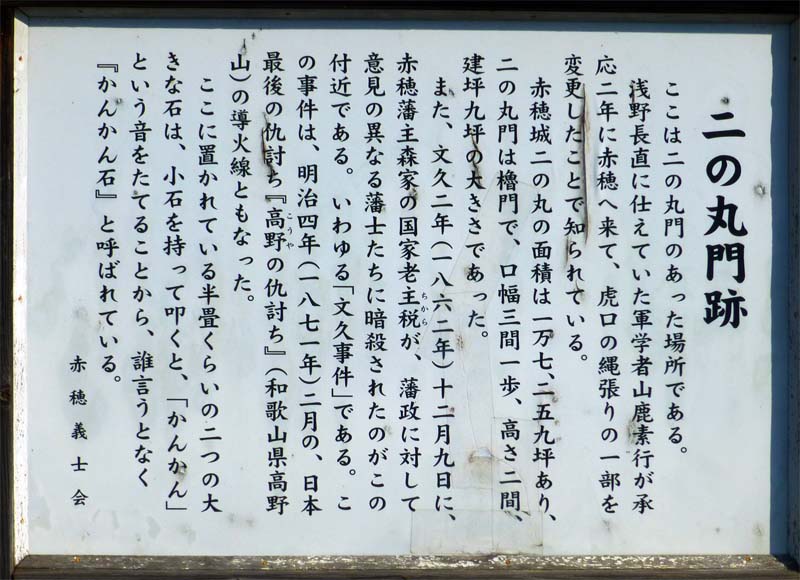 二の丸門跡
ここは二の丸門のあった場所である。
浅野長直に仕えていた軍学者山鹿素行が承
応二年に赤穂へ来て、虎口の縄張りの一部を
変更したことで知られている。
赤穂城二の丸の面積は一万七、二五九坪あり、
二の丸門は櫓門で、口幅三間一歩、高さ二間、
建坪九坪の大きさであった。
また、文久二年(一八六二年)十二月九日に、
赤穂藩主森家の国家老主税が、藩政に対して
ちから
意見の異なる藩士たちに暗殺されたのがこの
付近である。いわゆる「文久事件」である。こ
の事件は、明治四年(一八七一年)二月の、日本
最後の仇討ち『高野の仇討ち』(和歌山県高野
こうや
山)の導火線ともなった。
ここに置かれている半畳くらいの二つの大
きな石は、小石を持って叩くと、「かんかん」
という音をたてることから、誰言うとなく
『かんかん石』と呼ばれている。
赤穂義士会